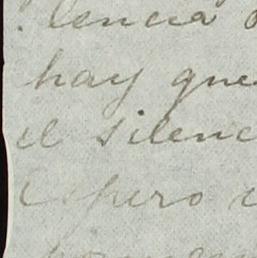 lencia
hay que
el silenc
Espero